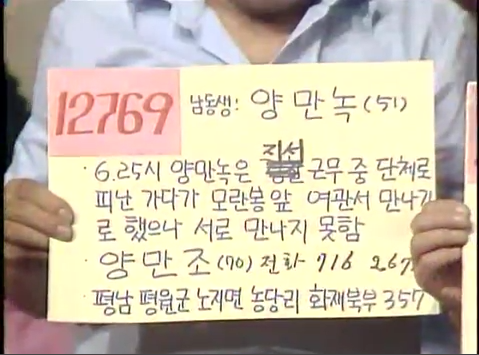 12769 남동생: 양만녹(51)
· 6.25시 양만녹은 직선 근무 중 단체로
피난 가다가 모란봉앞 여관서 만나기
로 했으나 서로 만나지 못함
· 양만조(70) 전화 716 267
· 평남 평원군 노지면 농당리 화재북부 357